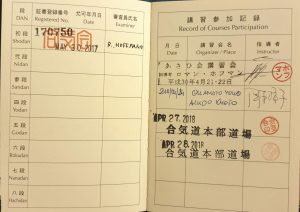 段 証書登録番号 允可年月日 審査員氏名
DAN Registered No. Date Examiner
初段
Shodan
170750
MAY 30 2017
R. HOFFMANN
Nidan
Sandan
四段
Yondan
五段
Godan
六段
Rokudan
七段
Nanadan
八段
Hachidan
講習参加記録
Record of Courses Participation
月日 講習会名 指導者
Date Organizer / Place Instructor
あさひ会講習会
ロマン・ホフマン
平成30年4月21-22日
OKAMOTO YOKO
AIKIDO KYOTO
APR 27. 2018
合気道本部道場
APR 28. 2018
合気道本部道場